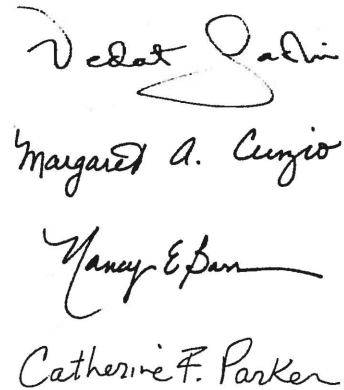 Vedat
Margaret A. Cunzio
Nancy E Barr
Catherine F. Parker